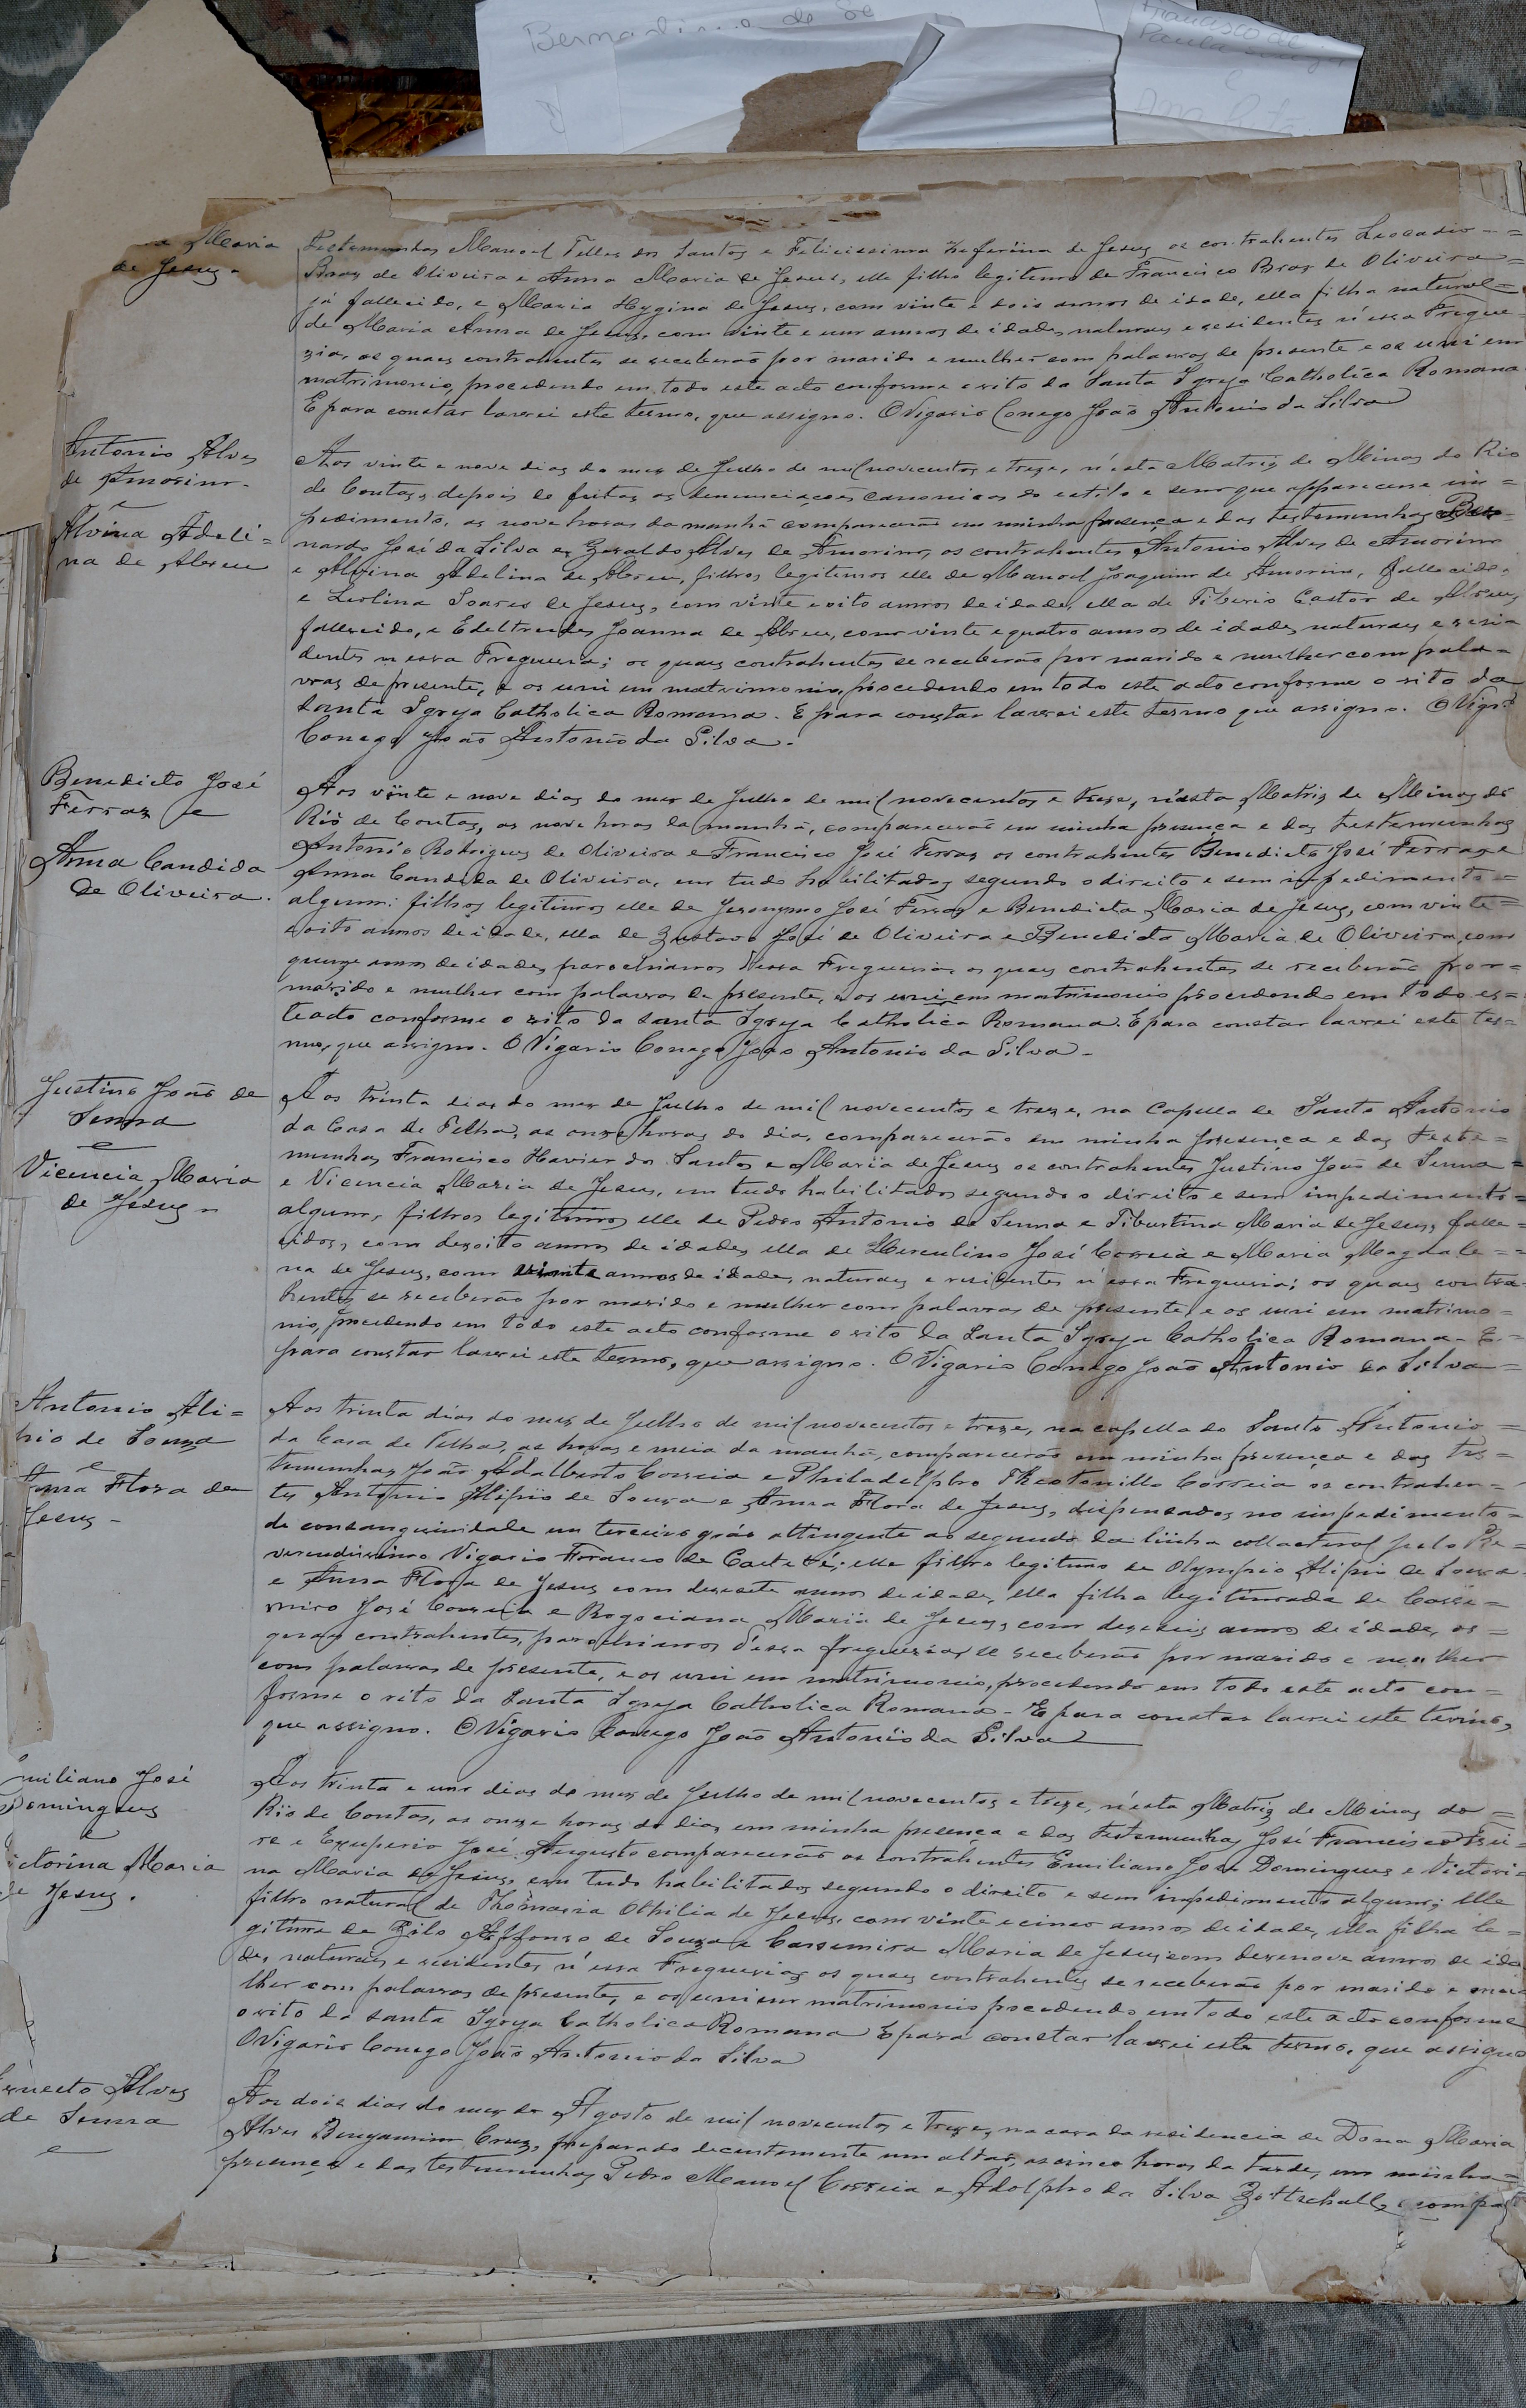 Bernardino de Se
Francisco de
Paula
e
Maria
de Jesus.
Testemunhas Manoel Telles dos Santos e Felicissima Zeferina de Jesus os contrahentes Leocadio
Braz de Oliveira e Anna Maria de Jesus, elle filho legitimo de Francisco Braz de Oliveira
já fallecido, e Maria Hygina de Jesus, com vinte e dois annos de idade, ella filha natural
de Maria Anna de Jesus, com vinte e um annos de idade, naturaes e residentes n'essa Fregue=
zia, os quaes contrahentes se receberão por marido e mulher com palavras de presente e os uni em
matrimonio, procedendo em todo este acto conforme o rito da Santa Igreja Catholica Romana
E para constar lavrei este termo, que assigno. O Vigario Conego João Antonio da Silva
Antonio Alves
de Amorim.
e
Alvina Adeli=
na de Abreu
Aos vinte e nove dias do mez de Julho de mil novecentos e treze, n'esta Matriz de Minas do Rio
de Contas, depois de feitas as denunciações canonicas do estilo e sem que apparecesse im=
pedimento, as nove horas da manhã comparecerão em minha presença e das testemunhas Ber=
nardo José da Silva e Geraldo Alves de Amorim, os contrahentes Antonio Alves de Amorim
e Alvina Adelina de Abreu, filhos legitimos elle de Manoel Joaquim de Amorim, fallecido,
e Leolina Soares de Jesus, com vinte e oito annos de idade, ella de Tiberio Castor de Abreu,
fallecido, e Edeltrudes Joanna de Abreu, com vinte e quatro annos de idade, naturaes e resi
dentes n'essa Freguezia; os quaes contrahentes se receberão por marido e mulher com pala=
vras de presente, e os uni em matrimonio, procedendo em todo este acto conforme o rito da
Santa Igreja Catholica Romana. E para constar lavrei este termo que assigno. O Vigrº
Conego João Antonio da Silva.
Benedicto José
Ferraz e
Anna Candida
de Oliveira.
Aos vinte e nove dias do mez de Julho de mil novecentos e treze, n'esta Matriz de Minas do
Rio de Contas, as nove horas da manhã, comparecerão em minha presença e das testemunhas
Antonio Rodrigues de Oliveira e Francisco José Ferraz os contrahentes Benedicto José Ferraz e
Anna Candida de Oliveira, em tudo habilitados segundo o direito e sem impedimento=
algum: filhos legitimos elle de Jeronymo José Ferraz e Benedicta Maria de Jesus, com vinte=
e oito annos de idade, ella de Gustavo José de Oliveira e Benedicta Maria de Oliveira, com
quinze annos de idade, parochianos d'essa Freguezia, os quaes contrahentes se receberão por=
marido e mulher com palavras de presente, e os uni em matrimonio procedendo em todo es=
te acto conforme o rito da Santa Igreja Catholica Romana. E para constar lavrei este ter=
mo, que assigno. O Vigario Conego João Antonio da Silva.
Justino João de
Senna
e
Vicencia Maria
de Jesus.
Aos trinta dias do mez de Julho de mil novecentos e treze, na Capella de Santo Antonio
da Casa de Telha, as onze horas do dia, comparecerão em minha presença e das teste=
munhas Francisco Xavier dos Santos e Maria de Jesus os contrahentes Justino João de Senna=
e Vicencia Maria de Jesus, em tudo habilitados segundo o direito e sem impedimento=
algum, filhos legitimos elle de Pedro Antonio de Senna e Tiburtina Maria de Jesus, falle=
cidos, com dezoito annos de idade, ella de Herculino José Correia e Maria Magdale=
na de Jesus, com vinte annos de idade, naturaes e residentes n'essa Freguezia; os quaes contra
hentes se receberão por marido e mulher com palavras de presente, e os uni em matrimo=
nio, procedendo em todo este acto conforme o rito da Santa Igreja Catholica Romana. E=
para constar lavrei este termo, que assigno. O Vigario Conego João Antonio da Silva=
Antonio Ali=
pio de Souza
e
Anna Flora de
Jesus.
Aos trinta dias do mez de Julho de mil novecentos e treze, na capella de Santo Antonio=
da Casa de Telha, as horas e meia da manhã, comparecerão em minha presença e das tes=
temunhas João Adalberto Correia e Philadelpho Theotonillo Correia os contrahen=
tes Antonio Alipio de Souza e Anna Flora de Jesus, dispensados no impedimento=
de consanguinidade em terceiro gráo attingente ao segundo da linha collacteral pelo Re=
verendissimo Vigario Foraneo de Caeteté; elle filho legitimo de Olympio Alipio de Souza
e Anna Flora de Jesus com desesete annos de idade, ella filha legitimada de Cassi=
miro José Correia e Rogociana Maria de Jesus, com deseseis annos de idade, os=
quaes contrahentes, parochianos d'essa freguezia, se receberão por marido e mulher
com palavras de presente, e os uni em matrimonio, procedendo em todo este acto con=
forme o rito da Santa Igreja Catholica Romana. E para constar lavrei este termo,
que assigno. O Vigario Conego João Antonio da Silva
miliano José
Domingues
e
ictorina Maria
de Jesus.
Aos trinta e um dias do mez de Julho de mil novecentos e treze, n'esta Matriz de Minas do=
Rio de Contas, as onze horas do dia, em minha presença e das testemunhas José Francisco Frei=
re e Exuperio José Augusto comparecerão os contrahentes Emiliano José Domingues e Victori=
na Maria de Jesus, em tudo habilitados segundo o direito e sem impedimento algum; elle
filho natural de Thomazia Othilia de Jesus, com vinte e cinco annos de idade, ella filha le=
gitima de Zilo Affonso de Souza e Cassemira Maria de Jesus, com desenove annos de ida
de, naturaes e residentes n'essa Freguezia, os quaes contrahentes se receberão por marido e mu
lher com palavras de presente, e os uni em matrimonio procedendo em todo este acto conforme
o rito da Santa Igreja Catholica Romana E para constar lavrei este termo, que assigno
O Vigario Conego João Antonio da Silva
rnesto Alves
de Senna
e
Aos dois dias do mez de Agosto de mil novecentos e treze, na casa da residencia de Dona Maria
Alves Benjamim Cruz, preparado decentemente um altar, as cinco horas da tarde, em minha=
presença e das testemunhas Pedro Manoel Correia e Adolpho da Silva Gottschall, compa